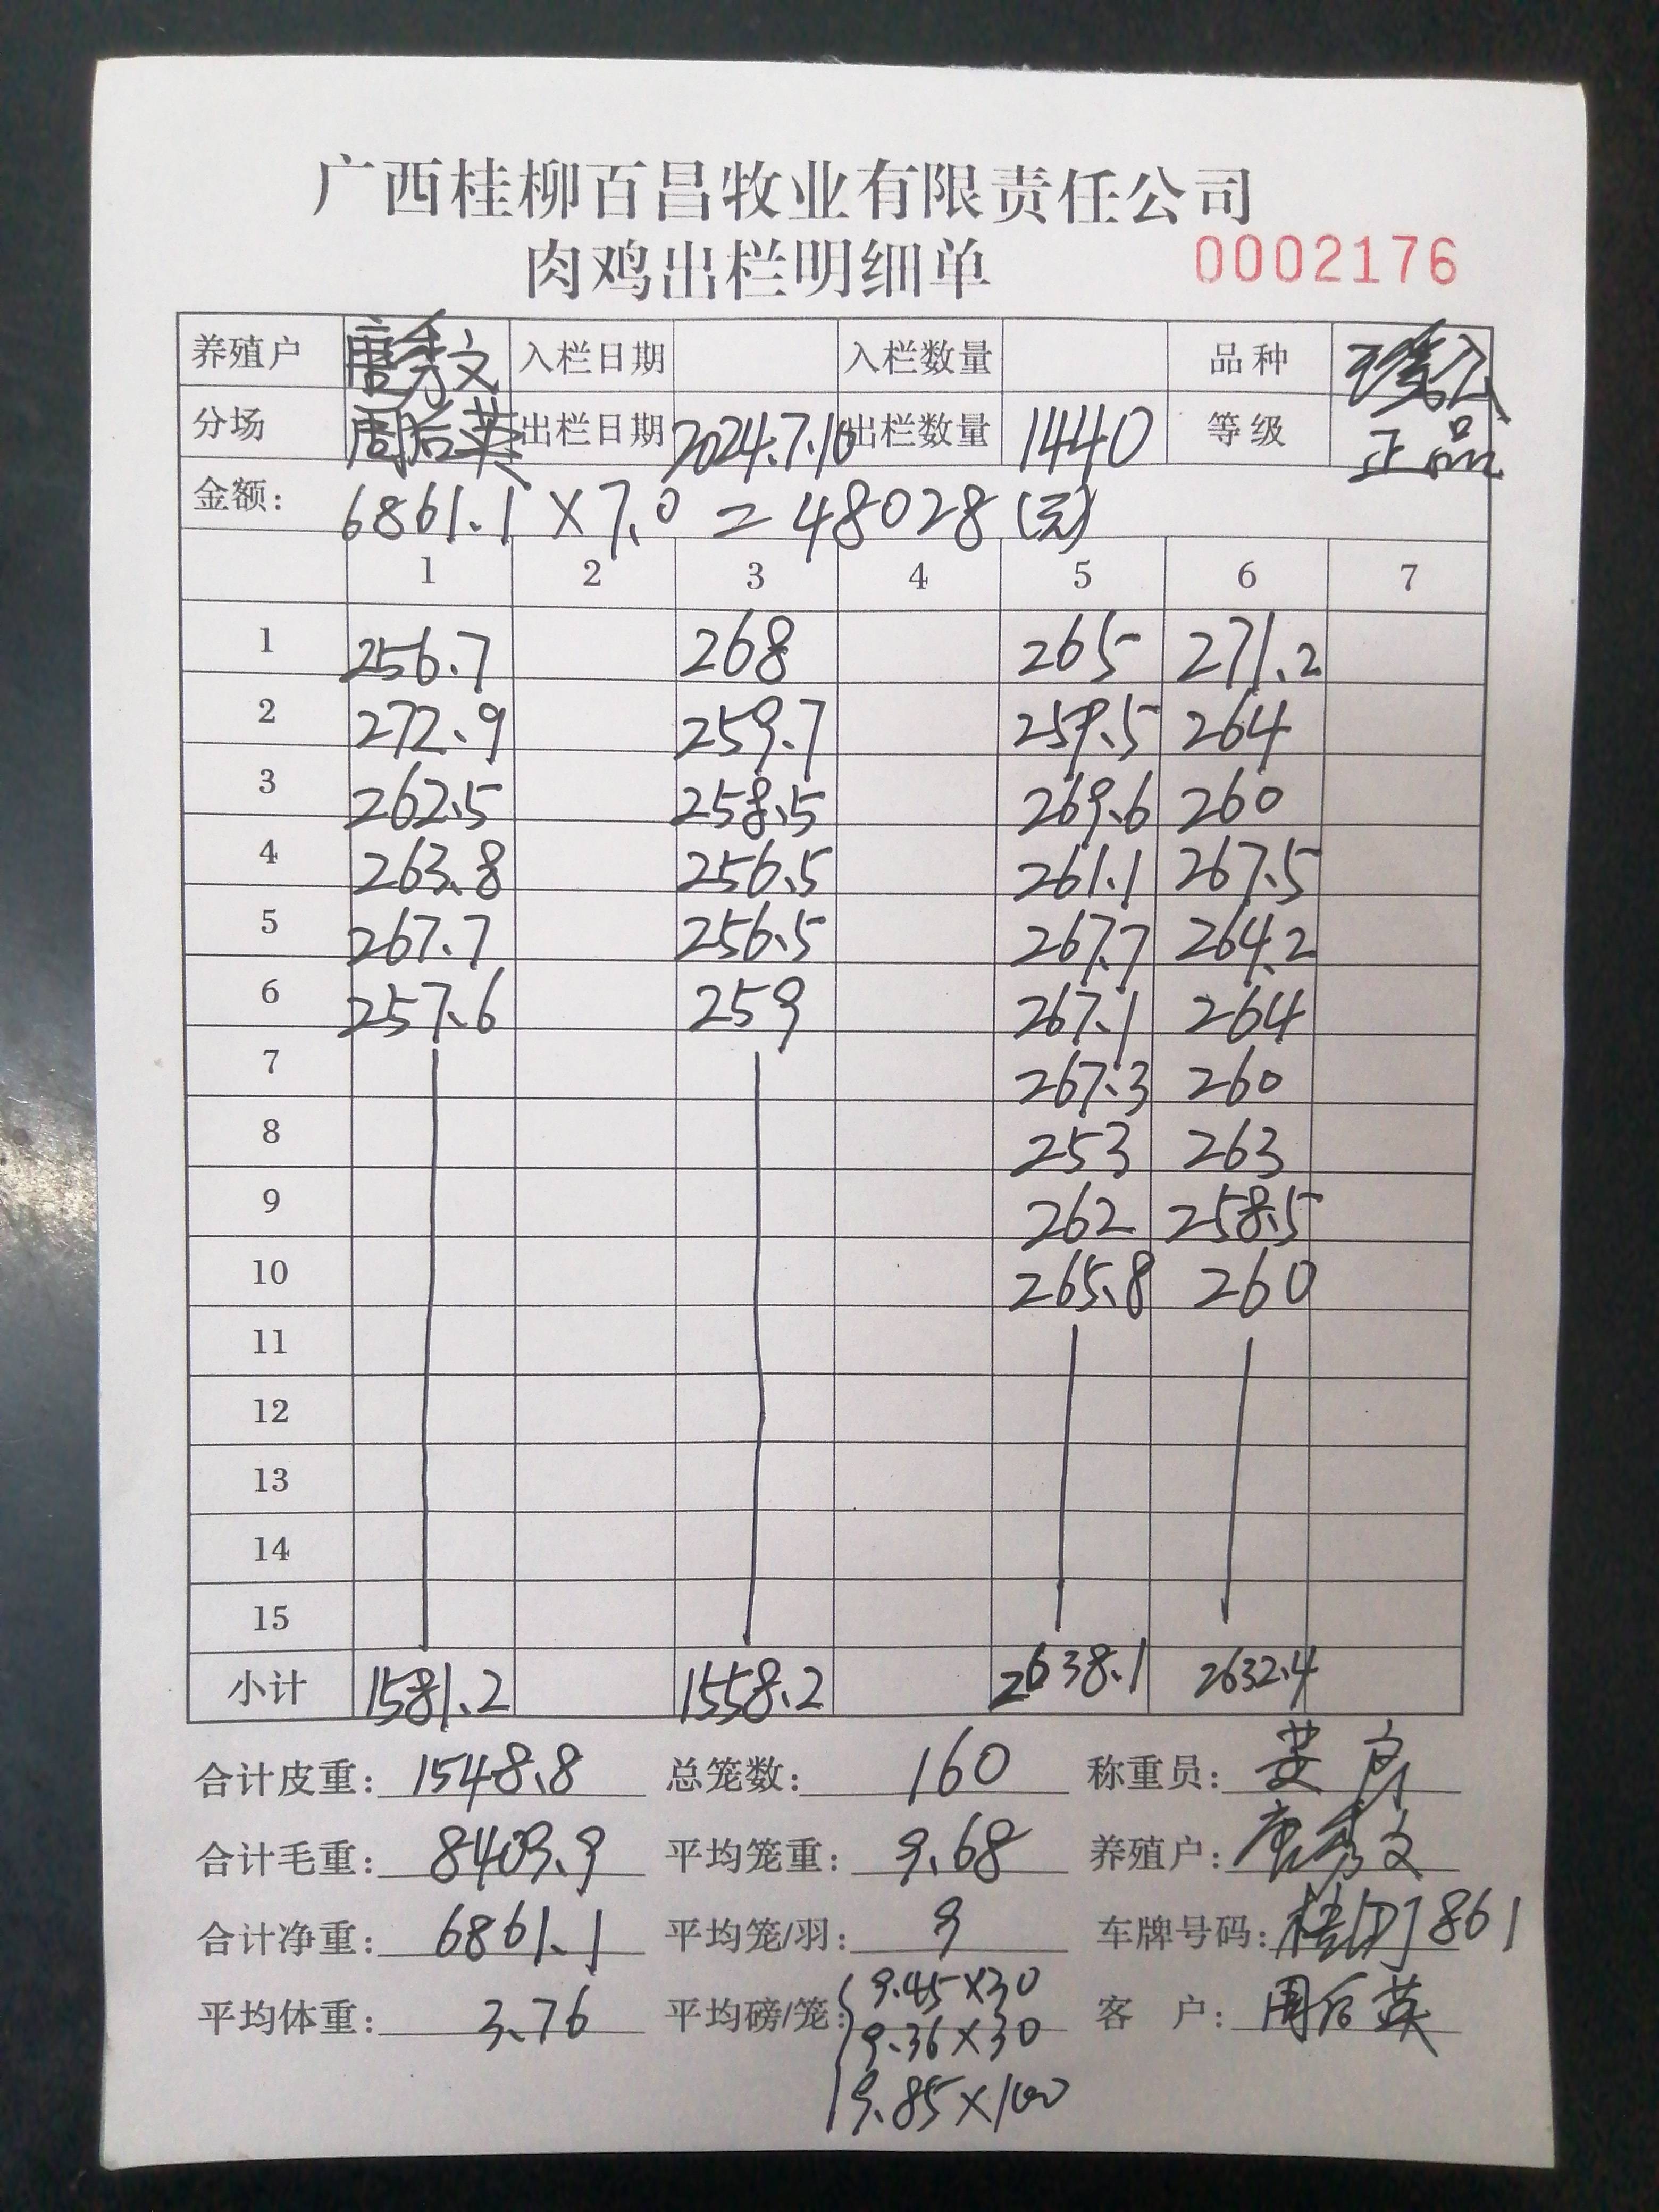 广西桂柳百昌牧业有限责任公司
肉鸡出栏明细单 0002176
养殖户 唐秀文 入栏日期 入栏数量 品种
分场 周后英 出栏日期 2024.7.16 出栏数量 1440 等级 正品
金额: 6861.1 × 7.0 = 48028 (元)
1 2 3 4 5 6 7
1 256.7 268 265 271.2
2 272.9 259.7 259.5 264
3 262.5 258.5 269.6 260
4 263.8 256.5 261.1 267.5
5 267.7 256.5 267.7 264.2
6 257.6 259 267.1 264
7 267.3 260
8 253 263
9 262 258.5
10 265.8 260
11
12
13
14
15
小计 1581.2 1558.2 2638.1 2632.4
合计皮重: 1548.8 总笼数: 160 称重员:
合计毛重: 8409.9 平均笼重: 9.68 养殖户: 唐秀文
合计净重: 6861.1 平均笼/羽: 9 车牌号码: 861
平均体重: 3.76 平均磅/笼: 9.45×30 客 户: 周后英
9.36×30
9.85×100